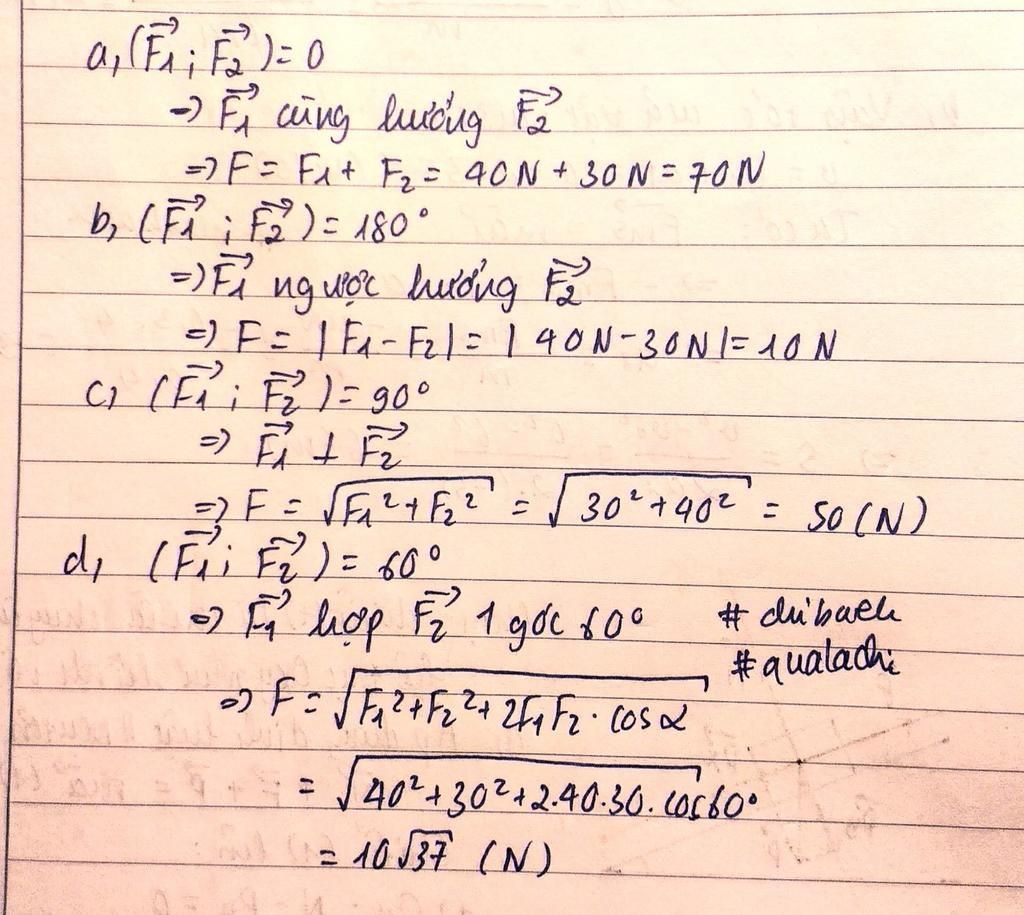 a, (F₁⃗ ; F₂⃗ ) = 0
=> F₁⃗ cùng hướng F₂⃗
=> F = F₁ + F₂ = 40N + 30N = 70N
b, (F₁⃗ ; F₂⃗ ) = 180°
=> F₁⃗ ngược hướng F₂⃗
=> F = | F₁ - F₂ | = | 40N - 30N | = 10N
c, (F₁⃗ ; F₂⃗ ) = 90°
=> F₁⃗ ⊥ F₂⃗
=> F = √(F₁² + F₂²) = √(30² + 40²) = 50 (N)
d, (F₁⃗ ; F₂⃗ ) = 60°
=> F₁⃗ hợp F₂⃗ 1 góc 60°
# chibach
# qualachi
=> F = √(F₁² + F₂² + 2F₁F₂ . cosα)
= √(40² + 30² + 2.40.30.cos60°)
= 10√37 (N)